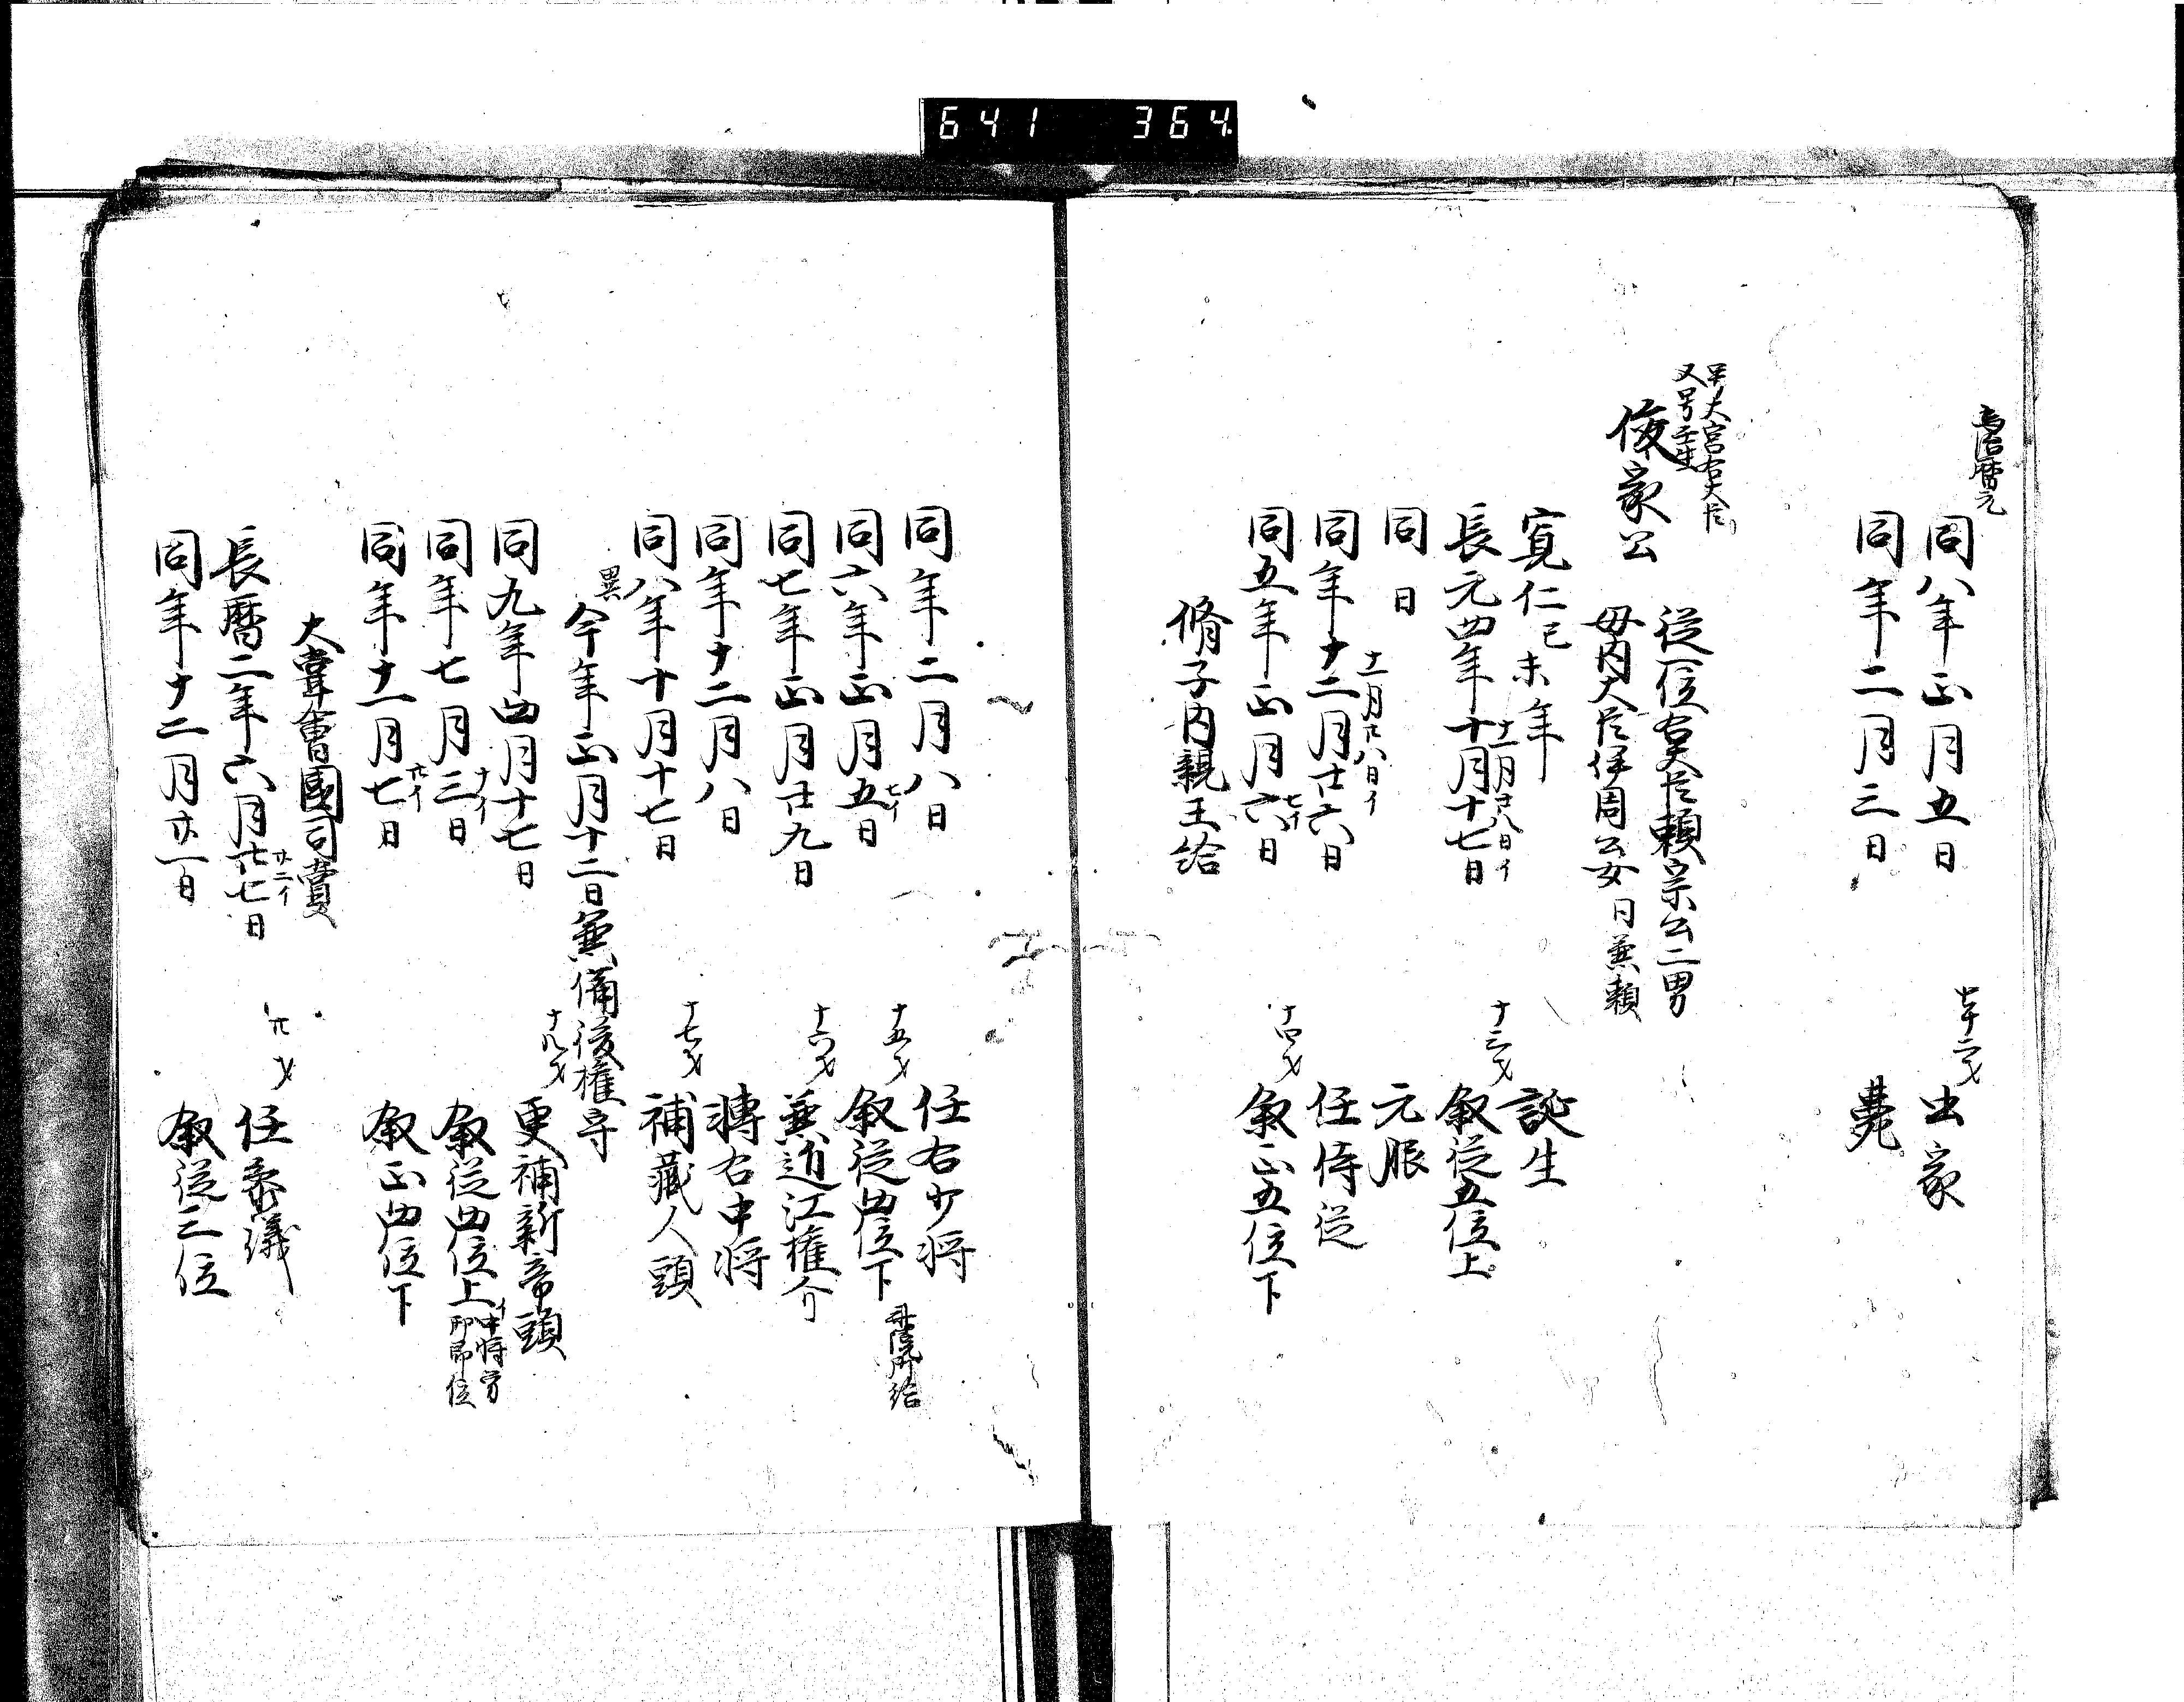 641 364
為治暦元
同八年正月五日 七十二才 出家
同年二月三日 薨
号大宮右大臣
又号壬生
俊家公
従一位右大臣頼宗公二男
母内大臣伊周公女 日兼頼
寛仁己未年 誕生
長元四年十月十七日 十一月廿八日イ 十三才 叙従五位上
同日 元服
同年十二月廿六日 十一月廿八日イ 任侍従
同五年正月六日 七イ 十四才 叙正五位下
脩子内親王給
同年二月八日 任右少将
同六年正月五日 七イ 十五才 叙従四位下 院御給
同七年正月廿九日 十六才 兼近江権介
同年十二月八日 轉右中将
同八年十月十七日 十七才 補蔵人頭
異 今年正月十二日兼備後権守
同九年四月十七日 十八才 更補新帝頭
同年七月三日 十イ 叙従四位上 イ中将労 御即位
同年十一月七日 叙正四位下
大嘗會國司賞
長暦二年六月廿七日 廿二イ 廿才 任参議
同年十二月廿一日 叙従三位